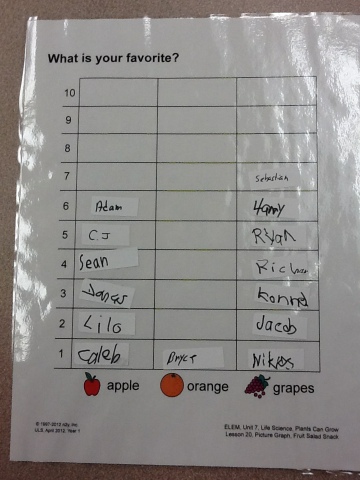 What is your favorite?
10
9
8
7 Sebastian
6 Adam
5 CJ Ryan
4 Sean
3
2 Lilo Jacob
1 Caleb Nikos
apple orange grapes
© 1997-2012 n2y, Inc.
ULS, April 2012, Year 1
ELEM, Unit 7, Life Science, Plants Can Grow
Lesson 20, Picture Graph, Fruit Salad Snack